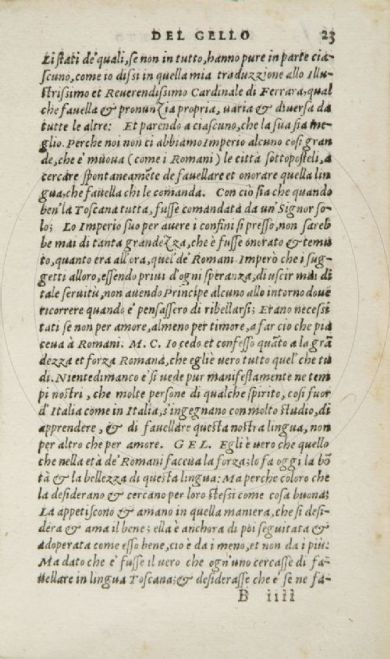 DEL GELLO 23
Li stati de' quali, se non in tutto, hanno pure in parte cia-
scuno, come io dissi in quella mia traduzzione allo Illu-
strissimo et Reverendissimo Cardinale di Ferrara, qual
che favella & pronunzia propria, varia & diversa da
tutte le altre: Et parendo a ciascuno, che la sua sia me-
glio. Perche noi non ci abbiamo Imperio alcuno cosi gran
de, che e' muova (come i Romani) le città sottoposteli, a
cercare spontaneamēte de favellare et onorare quella lin
gua, che favella chi le comanda. Con ciò sia che quando
ben' la Toscana tutta, fusse comandata da un' Signor so-
lo; Lo Imperio suo per avere i confini si presso, non sareb
be mai di tanta grandezza, che e' fusse onorato & temu
to, quanto era all'ora, quel' de' Romani. Imperò che i sug-
getti alloro, essendo privi d'ogni speranza, di uscir mai di
tale servitù, non avendo Principe alcuno allo intorno dove
ricorrere quando e' pensassero di ribellarsi; Erano necessi
tati se non per amore, almeno per timore, a far cio che pia
ceva à Romani. M. C. Io cedo et confesso quāto a la grā
dezza et forza Romana, che egli è vero tutto quel' che tu
di. Nientedimanco e' si vede pur manifestamente ne tem
pi nostri, che molte persone di qualche spirito, cosi fuor
d'Italia come in Italia, s'ingegnano con molto studio, di
apprendere, & di favellare questa nostra lingua, non
per altro che per amore. GEL. Egli è vero che quello
che nella età de' Romani faceva la forza; lo fa oggi la bō
tà & la bellezza di questa lingua: Ma perche coloro che
la desiderano & cercano per loro stessi come cosa buona;
La appetiscono & amano in quella maniera, che si desi-
dera & ama il bene; ella è anchora di poi seguitata &
adoperata come esso bene, cio è da i meno, et non da i piu:
Ma dato che e' fusse il vero che ogn'uno cercasse di fa-
vellare in lingua Toscana; & desiderasse che e' se ne fa-
B iiii